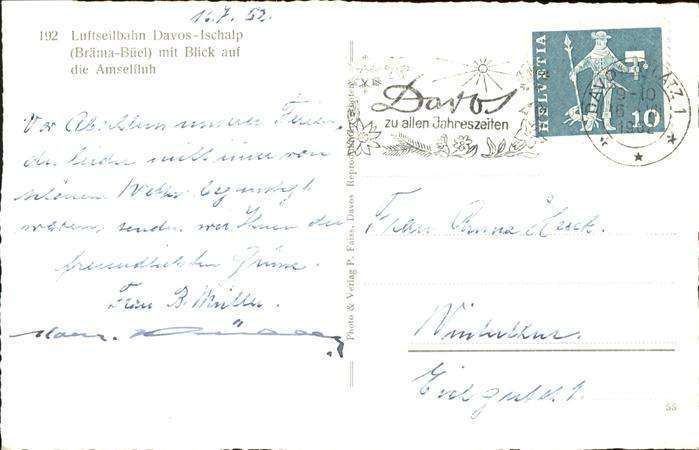 16.7.62.
192 Luftseilbahn Davos-Ischalp
(Bräma-Büel) mit Blick auf
die Amselfluh
Vor Abschluss unserer Ferien,
die leider nicht immer von
schönem Wetter begünstigt
waren, senden wir Ihnen die
freundlichsten Grüsse.
Frau B. Müller.
Photo & Verlag P. Faiss, Davos
Davos
zu allen Jahreszeiten
HELVETIA
10
DAVOS PLATZ 1
Frau Anna
Winterthur.
55